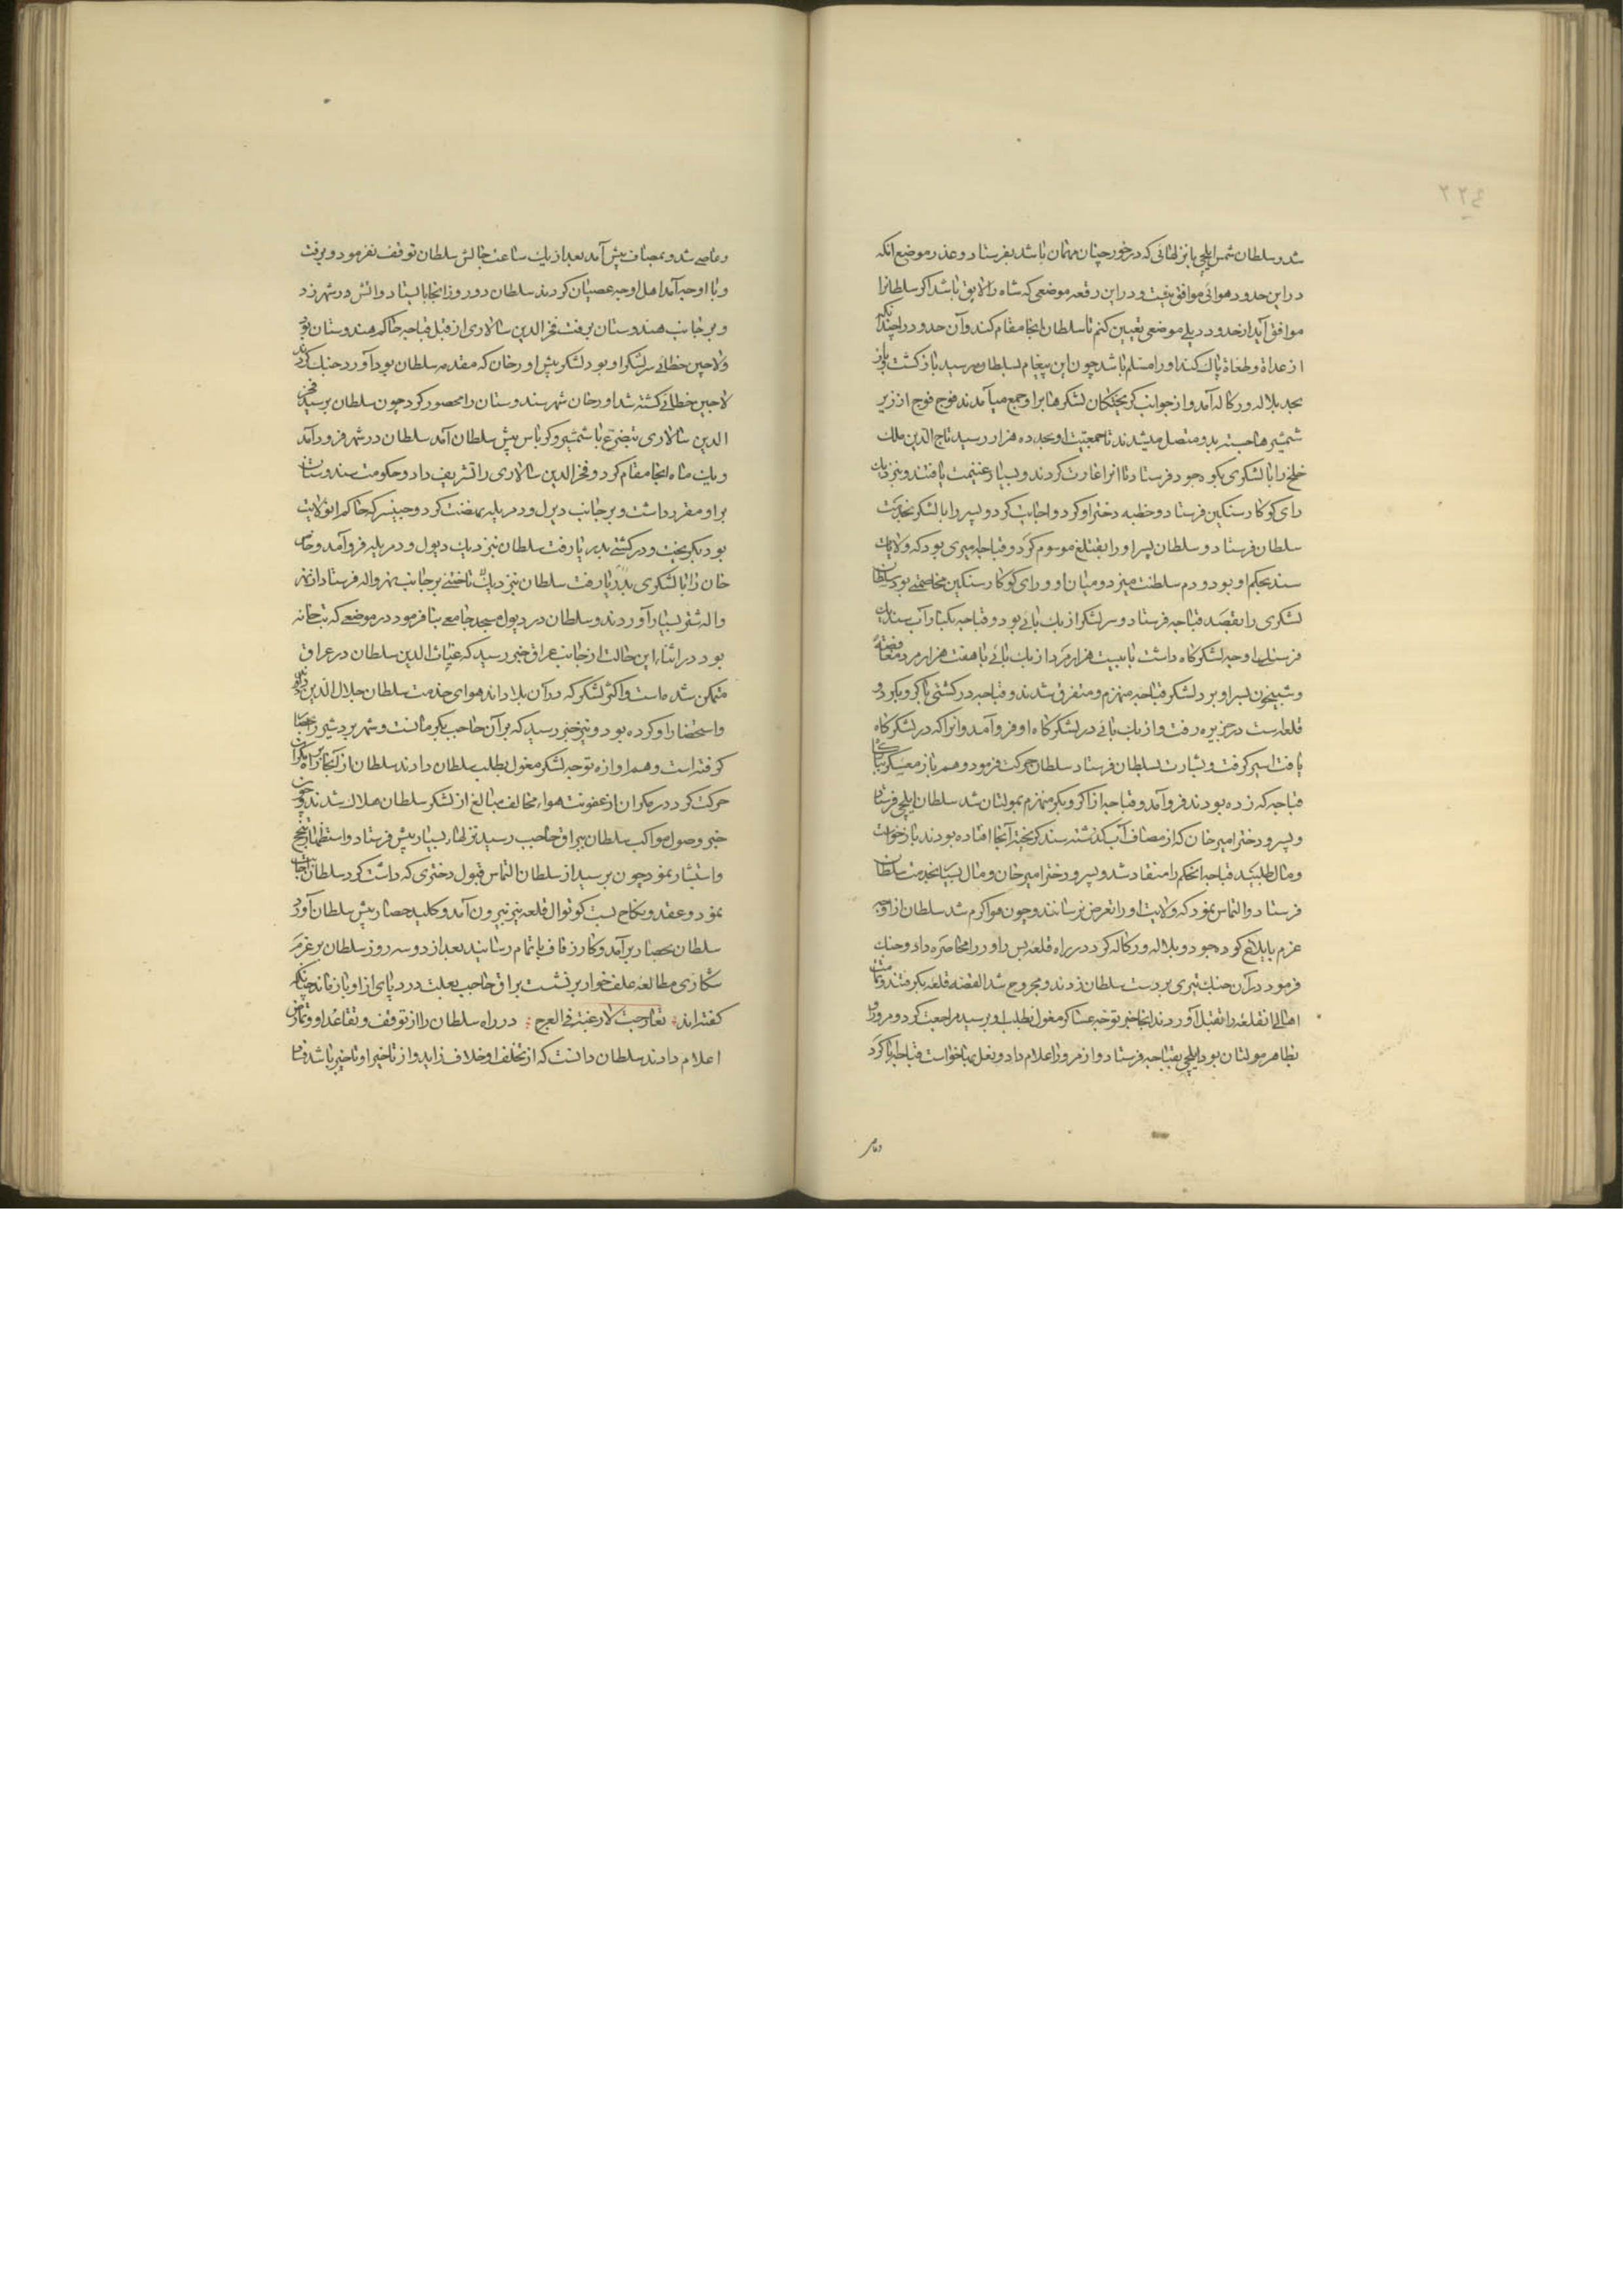 ٢٢٤
شد و سلطان شمس ایلچی با نزلهائی که درخور چنان مهمان باشد بفرستاد و عذر موضع انکه
در این حدود هوائی موافق نیست و در این رقعه موضعی که شاه را لایق باشد اکر سلطانرا
موافق آید از حدود دهلی موضعی تعیین کنم تا سلطان انجا مقام کند و آن حدود را چندانکه
از عداة و طغاة پاک کند او را مسلم باشد چون این پیغام بسلطان رسید باز کشت و باز
بحد بلاله و رکاله آمد و از جوانب کریختکان لشکرها بر او جمع میآمدند فوج فوج از زیر
شمشیرها جسته بدو متصل میشدند تا جمعیت او بحد ده هزار رسید تاج الدین ملک
خلج را با لشکری بکوه جود فرستاد تا انرا غارت کردند و بسیار غنیمت یافتند و بنزدیک
رای کوکار سنکین فرستاد و خطبه دختر او کرد و اجابت کرد و پسر را با لشکر بخدمت
سلطان فرستاد و سلطان پسر او را بقتلغ موسوم کرد و قباجه میری بود که ولایات
سند بحکم او بود و دم سلطنت میزد و میان او و رای کوکار سنکین مخاصمتی بود سلطان
لشکری را بقصد قباجه فرستاد و سر لشکر ازبک بائی بود و قباجه بکنار آب سند
فرسنکی اوچه لشکرکاه داشت با بیست هزار مرد ازبک بائی با هفت هزار مرد مغافصة
و شبیخون بسر او برد لشکر قباجه منهزم و متفرق شدند و قباجه در کشتی باکر و بکر دو
قلعه است در جزیره رفت و ازبک بائی در لشکرکاه او فرو آمد و انرا که در لشکرکاه
یافت اسیر کرفت و بشارت بسلطان فرستاد سلطان حرکت فرمود و هم باز معسکر
قباجه که زده بودند فرو آمد و قباجه از اکر و بکر منهزم بمولتان شد سلطان ایلچی فرستاد
و پسر و دختر امیر خان که از مصاف آب کذشته سند کریخته آنجا افتاده بودند بازخواست
و مال طلبید قباجه انحکم را منقاد شد و پسر و دختر امیر خان و مال بسیار بخدمت سلطان
فرستاد و التماس نمود که ولایت او را تعرض نرسانند و چون هوا کرم شد سلطان از اوچه
عزم یایلاغ کوه جود و بلاله و رکاله کرد در راه قلعه بس راور را محاصره داد و جنک
فرمود در آن جنک تیری بر دست سلطان زدند و مجروح شد القصه قلعه بکرفتند و تمامت
اهالی انقلعه را بقتل آوردند انجا خبر توجه عساکر مغول بطلب او برسید مراجعت کرد و مرور او
بظاهر مولتان بود ایلچی بقباجه فرستاد و از مرور اعلام داد و نعل بها خواست قباجه ابا کرد
و عاصی شد و بمصاف پیش آمد بعد از یک ساعت چالش سلطان توقف نفرمود و برفت
و با اوچه آمد اهل اوچه عصیان کردند سلطان دو روز انجا بایستاد و اتش در شهر زد
و بر جانب هندوستان برفت فخر الدین سالاری از قبل قباجه حاکم هندوستان بود
و لاجین خطائی سر لشکر او بود لشکر پیش اورخان که مقدمه سلطان بود آورد جنک کردند
لاجین خطائی کشته شد اورخان شهر سندوستان را محصور کرد چون سلطان برسید فخر
الدین سالاری بتضرع با شمشیر و کرباس پیش سلطان آمد سلطان در شهر فرود آمد
و یک ماه انجا مقام کرد و فخر الدین سالاری را تشریف داد و حکومت سندوستان
بر او مقرر داشت و بر جانب دیول و دمریله نهضت کرد و حنیسر که حاکم انولایت
بود بکریخت و در کشتی بدریا رفت سلطان نیزدیک دیول و دمریله فرو آمد و خاص
خان را با لشکری بتاختن بر جانب نهرواله فرستاد از نهر
واله شتر بسیار آوردند و سلطان در دیول مسجد جامعی بنا فرمود در موضعی که بتخانه
بود در اثناء این حالت از جانب عراق خبر رسید که غیاث الدین سلطان در عراق
متمکن شده است و اکثر لشکر که در آن بلاد اند هوای خدمت سلطان جلال الدین دارند
و استحضار او کرده بود و نیز خبر رسید که براق حاجب بکرمانست و شهر بردشیر را حصار
کرفته است و هم اوازه توجه لشکر مغول بطلب سلطان دادند سلطان از آنجا بر راه مکران
حرکت کرد در مکران از عفونت هواء مخالف مبالغ از لشکر سلطان هلاک شدند و چون
خبر وصول مواکب سلطان ببراق حاجب رسید نزلهاء بسیار پیش فرستاد و استظهار
و استبشار نمود چون برسید از سلطان التماس قبول دختری که داشت کرد سلطان اجابت
نمود و عقد و نکاح بست کوتوال قلعه نیز بیرون آمد و کلید حصار پیش سلطان آورد
سلطان بحصار بر آمد و کار زفاف باتمام رسانید بعد از دو سه روز سلطان بر عزم
شکار و مطالعه علف خوار بر نشست براق حاجب بعلت درد پای از او باز ماند چنانکه
کفته اند تعارجت لا رغبة فی العرج در راه سلطان را از توقف و تقاعد او و تمارض
اعلام دادند سلطان دانست که از تخلف او خلاف زاید و از تاخیر او تاخیر باشد